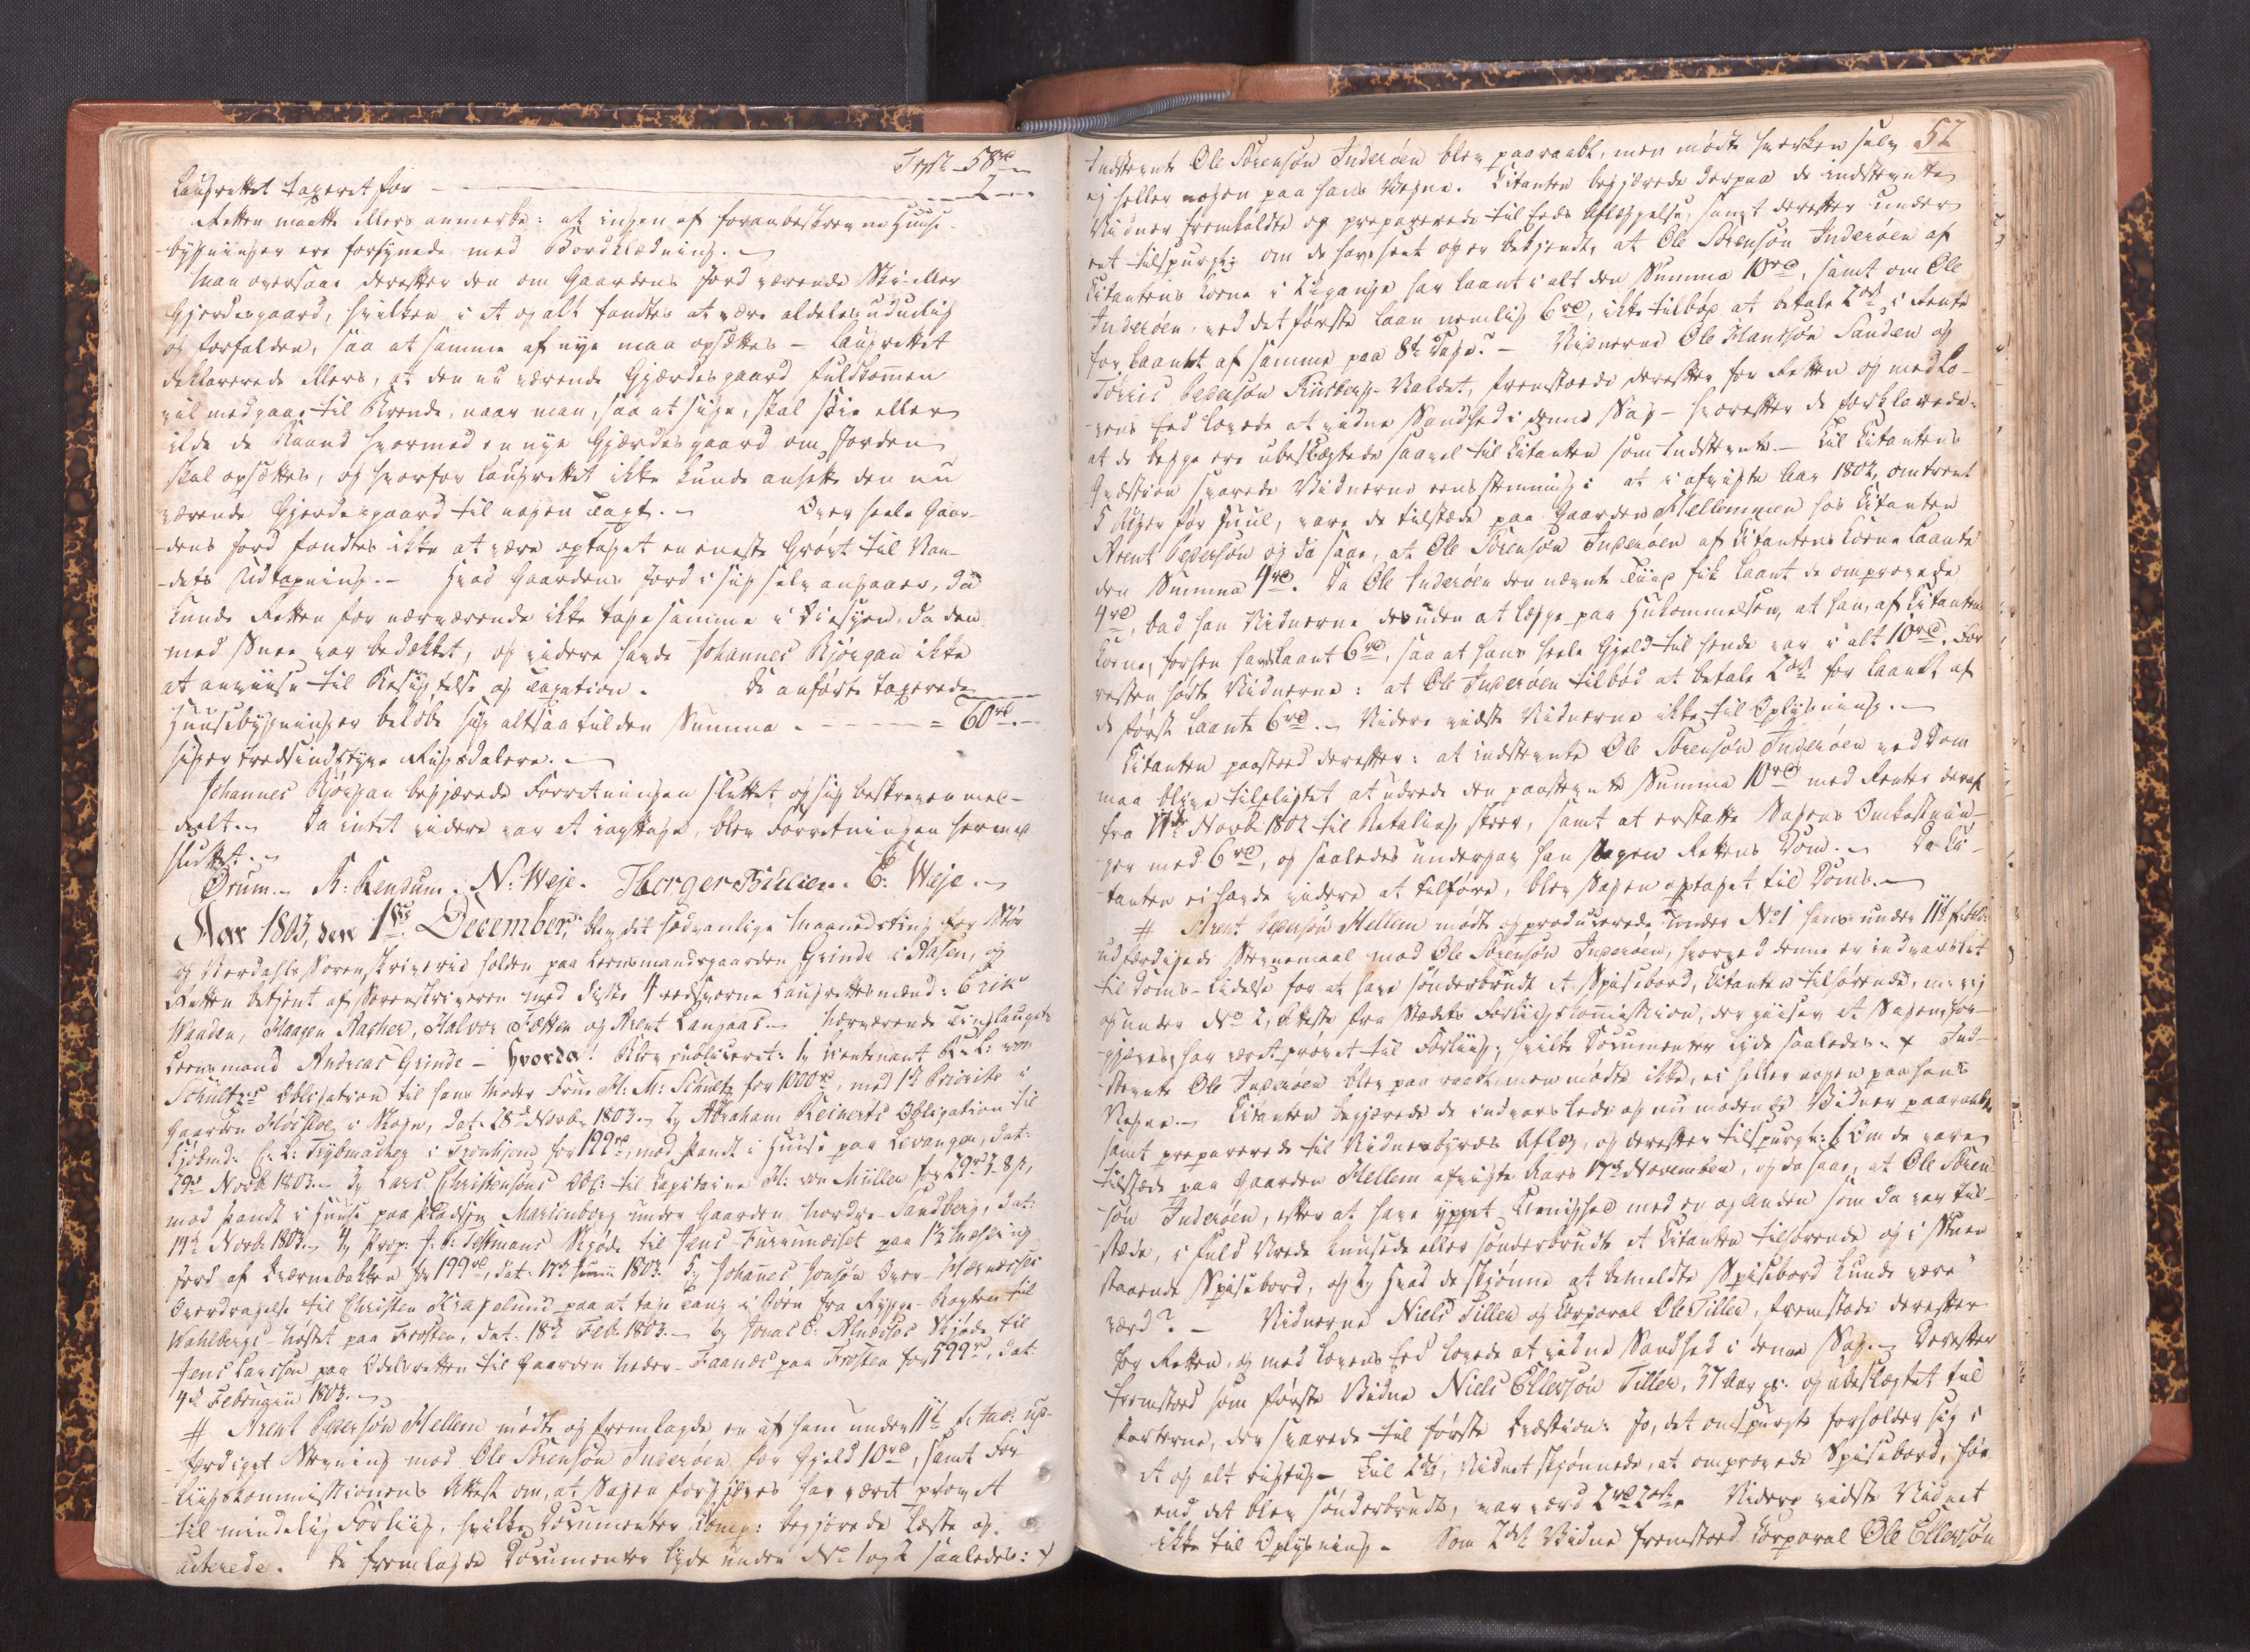 Trpt. 58 rd –
Laugrettet taxeret for – – – 2 – –
Retten maatte ellers anmerke: at ingen af foranbeskrevne Huuse-
bygninger ere forsynede med Bordklædning. –
Man oversaae derefter den om Gaardens Jord værende Ski-eller
Gjerdesgaard, hvilken i et og alt fandtes at være aldeles uduelig
og forfalden, saa at samme af nye maa opsættes – Laugrettet
deklarerede ellers, at den nu værende Gjærdesgaard fuldkommen
vil medgaae til Brende, naar man, saa at sige, skal skie eller
ilde de Raand hvormed en nye Gjærdesgaard om Jorden
skal opsættes, og hvorfor Laugrettet ikke kunde ansætte den nu
værende Gjerdesgaard til nogen Taxt. – Over heele Gaar-
dens Jord fandtes ikke at være optaget en eneste Grøvt til Van-
-dets Udtapning. – Hvad Gaardens Jord i sig selv angaaer, da
kunde Retten for nærværende ikke tage samme i Øiesyen, da den
med Snee var bedækket, og videre havde Johannes Bjørgan ikke
at anviise til Besigtelse og Taxation. De anførte taxerede
Huusebygninger beløbe sig altsaa til den Summa – – = 60 rd. –
siger tredsindstyve Rigsdalere. –
Johannes Bjørgan begjærede Forretningen sluttet og sig beskreven med-
deelt. – Da intet videre var at iagttage, blev Forretningen hermed
sluttet. –
Ørum. – R: Rendum. N: Weje. Thorger Build. E: Weje. –
Aar 1803, den 1ste December, blev det sædvanlige Maanedsting for Stør
og Værdahls Sorenskriverie holden paa Leensmandsgaarden Grinde i Skogn, og
Retten betjent af Sorenskriveren med disse 4 eedsvorne Laugrettesmænd: Erik
Wanden, Haagen Aasher, Halvor Fætten og Arent Langaas. – Nærværende Tinglaugets
Leensmand Andreas Grinde – Hvorda! Blev publiceret: 1) Lieutenant B: L: von
Schultz's Obligation til hans Moder Frue H: M: Schultz for 1000 rd, med 1te Prioritet i
Gaarden Holsloe i Skogn, dat. 28de Novbr 1803. – 2) Abraham Reinerts Obligation til
Kjøbmd: C: L: Tybmacher i Tronhjem for 199 rd, med Pandt i Huuse paa Levanger, dat:
29de Novbr 1803. – 3) Lars Christensøns Obl: til Capitaine H: von Müller for 29 rd 2. 8 s,
med Pandt i Huuse paa Pladsen Marienborg under Gaarden nordre Sandberg, dat:
14de Novb: 1803. – 4) Prop: J: F: Feltmans Skjøde til Jens Furunæset paa
Jord af Kværnebakken for 199 rd, dat: 17de Junii 1803. 5) Johannes Jonsøn Over-
Overdragelse til Christen Kragelund paa at tage Tang i Søen fra Rygge-Bogten til
Wahlbergs-Næstet paa Frosten, dat: 18de Febr 1803. – 6) Jonas E: Alnæsses Skjøde til
Jens Larssen paa Odelsretten til Gaarden Neder-Faanæs paa Frosten for 599 rd, dat:
4de Februarii 1803. –
# Arent Pedersøn Hellem mødte og fremlagde en af ham under 11te f: M: ud-
-færdiget Stevning mod Ole Sørensøn Inderøen for Gjeld 10 rd, samt For
-liigskommissionens Attest om, at Sagen forgjæves har været prøvet
til mindelig Forliig, hvilke Documenter Comp: begjærede læste og
acterede. De fremlagde Documenter lyde under No 1 og 2 saaledes: x
52
Indstevnte Ole Sørensøn Inderøen blev paaraabt, men mødte hverken selv
ej heller nogen paa hans Vegne. Citanten begjærede derpaa de indstevnte
Vidner fremkaldte og præparerede til Eeds Aflæggelse, samt derefter under
eet tilspurgt: om de have seet og er bekjendt, at Ole Sørensøn Inderøen af
Citantens Kone i Tilgange har laant i alt den Summa 10 rd, samt om Ole
Inderøen, ved det første Laan nemlig 6 rd, ikke tilbød at betale 2 ort i Rente
for Laanet af samme paa 8te Dage? – Vidnerne Ole Hansøn Sanden og
Tørris Pedersøn Riisberg-Valdet, fremstoede derefter for Retten og med Lo-
-vens Eed lovede at vidne Sandhed i denne Sag – hvorefter de forklarede:
at de begge ere ubeslægtede saavel til Citanten som Indstevnte. – Til Citantens
Quæstion svarede Vidnerne eenstemmig: at i afvigte Aar 1802, omtrent
5 Uger før Juul, vare de tilstæde paa Gaarden Mellemnæen hos Citanten
Arent Pedersøn og da saae, at Ole Sørensøn Inderøen af Citantens Kone laante
den Summa 4 rd. Da Ole Inderøen den nævnte Tiid fik laant de omprovede
4 rd, bad han Vidnerne desuden at lægge paa Hukommelsen, at han, af Citantens
Kone, forhen havde laant 6 rd, saa at hans heele Gjeld til hende var i alt 10 rd. For
resten hørte Vidnerne: at Ole Inderøen tilbød at betale 2 ort for Laanet af
de først laante 6 rd. – Videre vidste Vidnerne ikke til Oplysning. –
Citanten paastod derefter: at indstevnte Ole Sørensøn Inderøen ved Dom
maa blive tilpligtet at udrede den paastevnte Summa 10 rd med Renter deraf
fra 11te Novb: 1802 til Betaling skeer, samt at erstatte Sagens Omkostnin-
ger med 6 rd, og saaledes undergav han Sagen Rettens Dom. – Da Ci-
tanten ei havde videre at tilføre, blev Sagen optaget til Doms. –
# Arent Pedersøn Hellem mødte og producerede under No 1 hans under 11te f: M:
udfærdigede Stevnemaal mod Ole Sørensøn Inderøen, hvorved denne er indvarslet
til Doms-Lidelse for at have sønderbrudt et Spisebord, Citanten tilhørende,
og under No 2, Attest fra Stædets Forliigskommission, der viiser at Sagen for-
gjæves har været prøvet til Forliig; hvilke Documenter lyde saaledes: x Ind-
stevnte Ole Inderøen blev paaraabt, men mødte ikke, ei heller nogen paa hans
Vegne. – Citanten begjærede de indvarslede og nu mødende Vidner paaraabte,
samt præparerede til Vidnesbyrds Aflæg, og derefter tilspurgte: 1) Om de vare
tilstæde paa Gaarden Hellem afvigte Aars 17de November, og da saae, at Ole Søren-
søn Inderøen, efter at have yppet Uenighed med en og anden som da var til-
stæde, i fuld Vrede knusede eller sønderbrudte et Citanten tilhørende og i Stuen
staaende Spisebord, og 2) Hvad de skjønne at bemeldte Spisebord kunde være
værd? – Vidnerne Niels Tiller og Corporal Ole Tiller, fremstode derefter
for Retten, og med Lovens Eed lovede at vidne Sandhed i denne Sag. – Derefter
fremstoed som første Vidne Niels Ellevsøn Tiller, 37 Aar gl: og ubeslægtet til
Parterne, der svarede til første Quæstion: Jo, det omspurgte forholder sig i
et og alt rigtig – Til 2det, Vidnet skjønnede, at omprovede Spisebord, før
end det blev sønderbrudt, var værd 2 rd 2 ort. Videre vidste Vidnet
ikke til Oplysning. Som 2det Vidne fremstoed Corporal Ole Ellevsøn